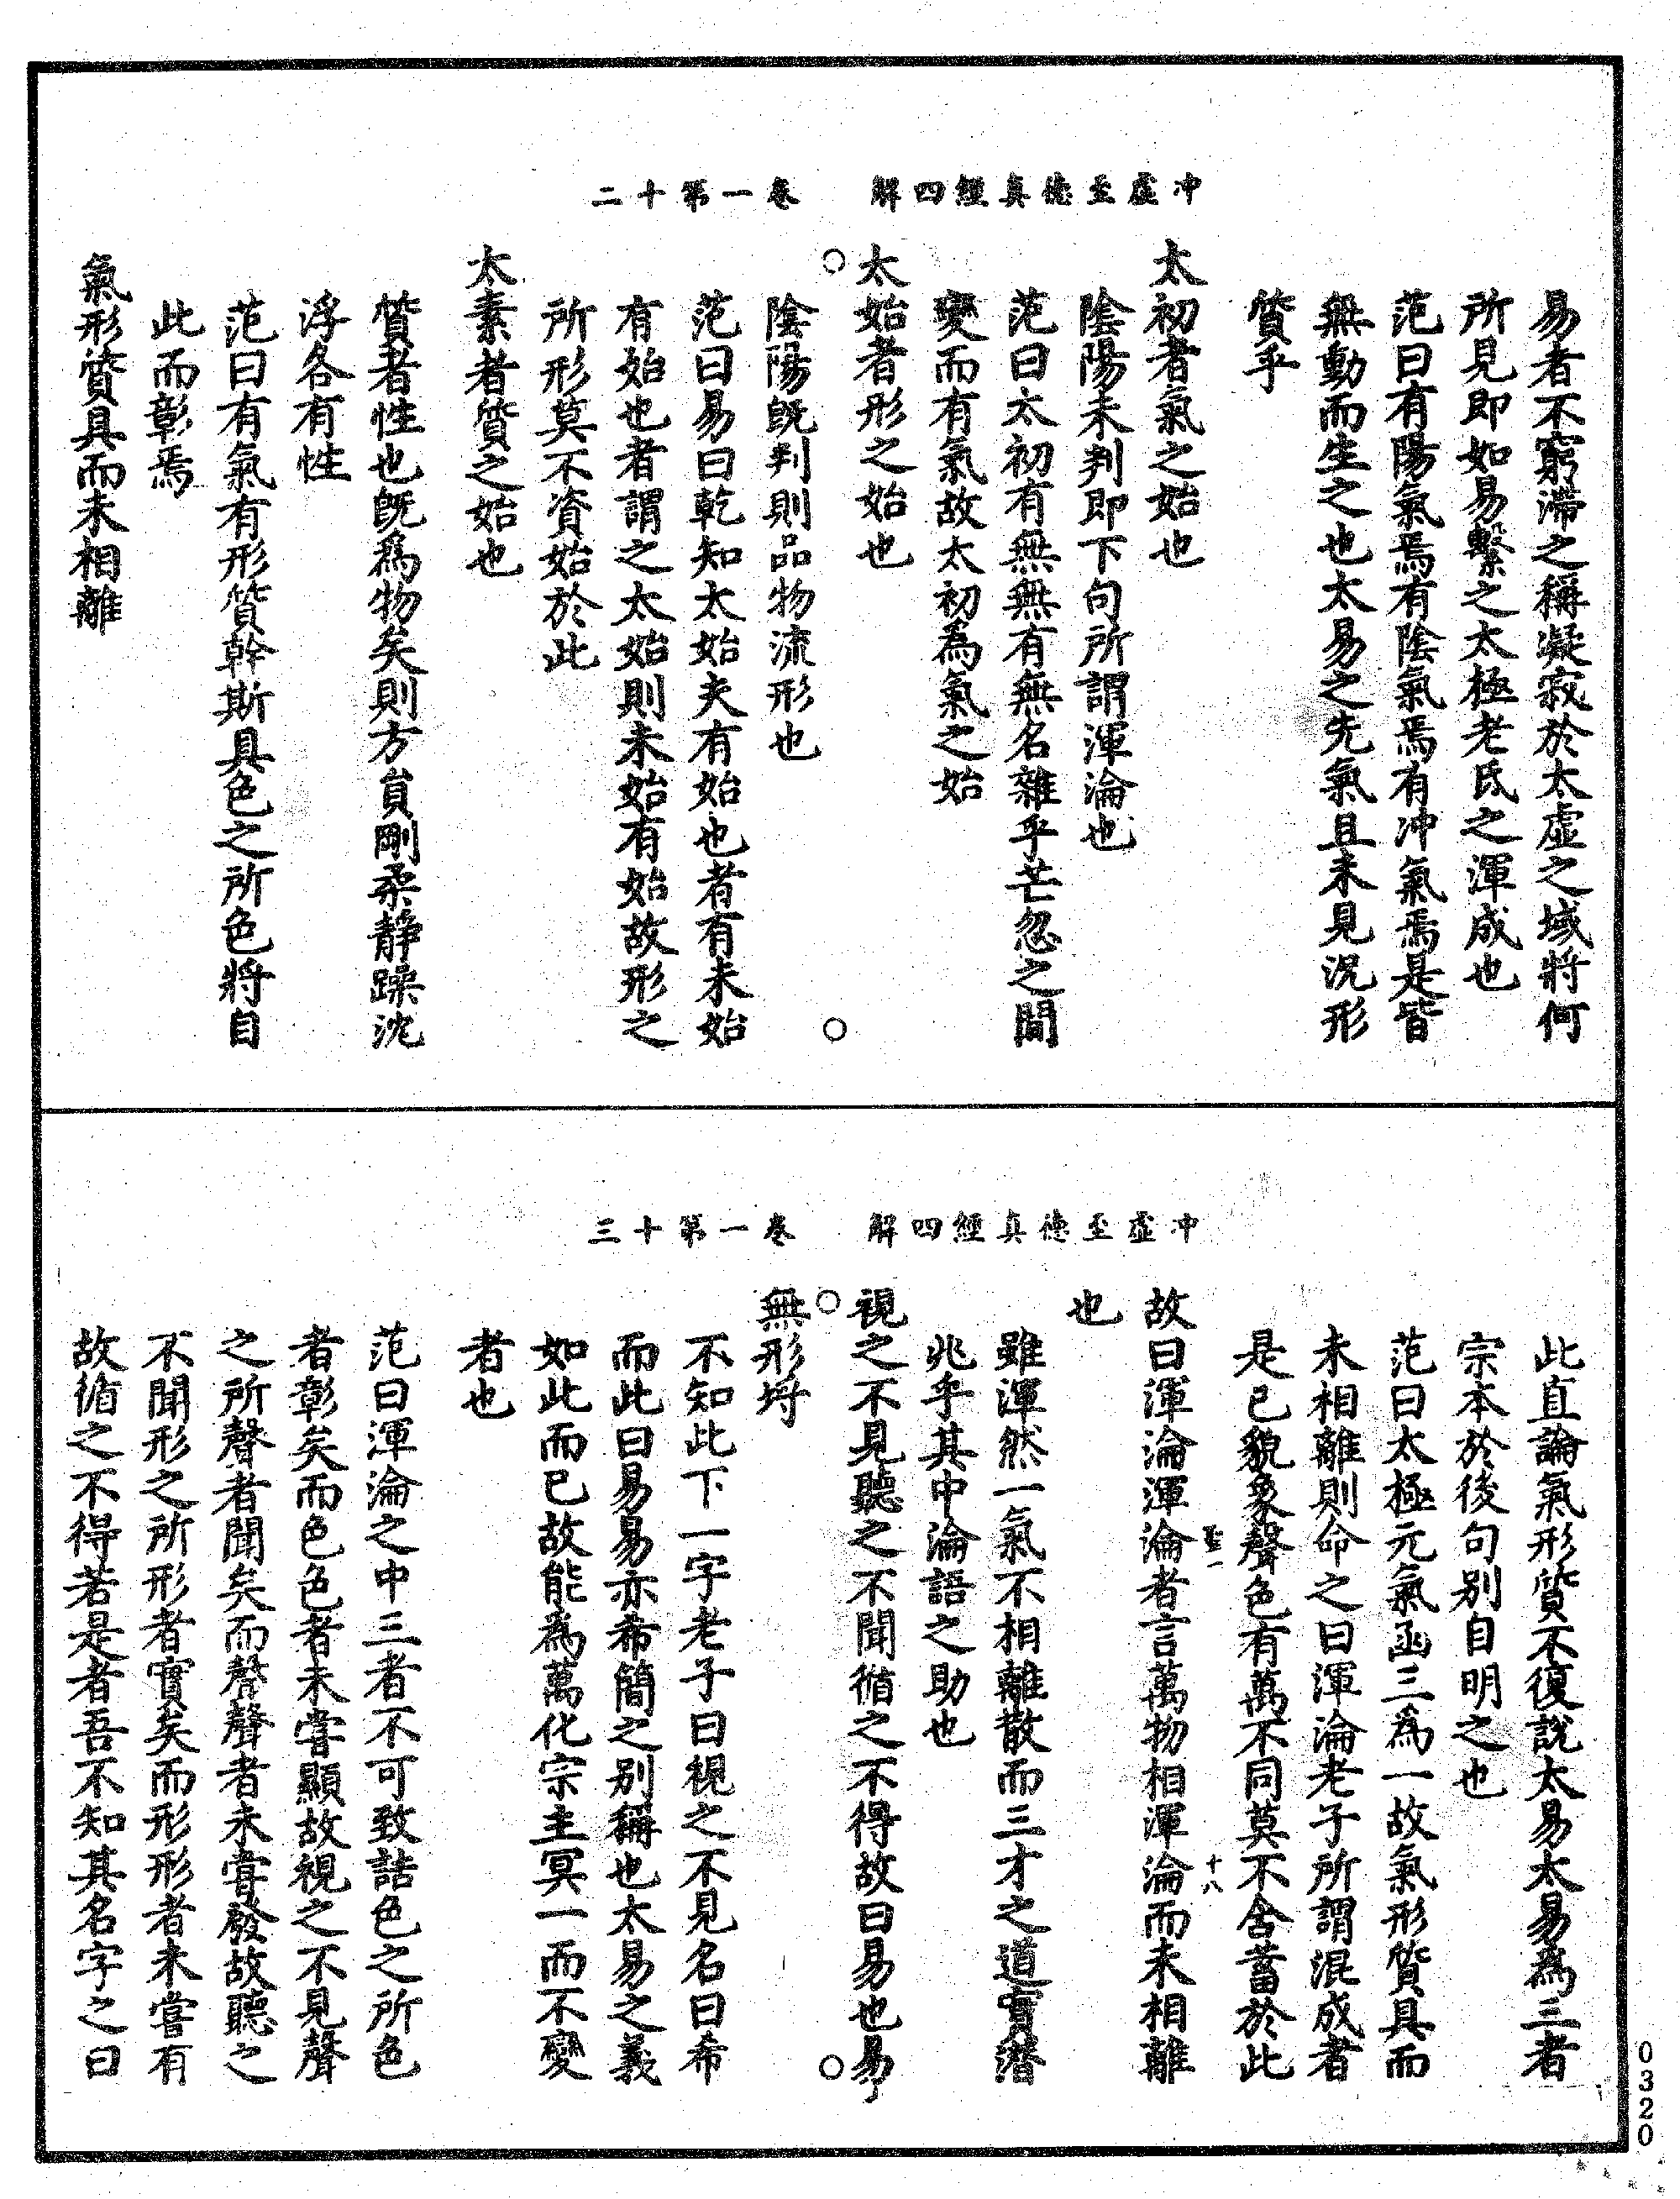 沖虛至德真經四解　卷一第十二
易者不窮滯之稱凝寂於太虛之域將何
所見即如易繫之太極老氏之渾成也
范曰有陽氣焉有陰氣焉有沖氣焉是皆
無動而生之也太易之先氣且未見況形
質乎
太初者氣之始也
陰陽未判即下句所謂渾淪也
范曰太初有無無有無名雜乎芒忽之間
變而有氣故太初為氣之始
太始者形之始也
○　○
陰陽既判則品物流形也
范曰易曰乾知太始夫有始也者有未始
有始也者謂之太始則未始有始故形之
所形莫不資始於此
太素者質之始也
質者性也既為物矣則方員剛柔靜躁沈
浮各有性
范曰有氣有形質幹斯具色之所色將自
此而彰焉
氣形質具而未相離
沖虛至德真經四解　卷一第十三
此直論氣形質不復說太易太易為三者
宗本於後句別自明之也
范曰太極元氣函三為一故氣形質具而
未相離則命之曰渾淪老子所謂混成者
是已貌象聲色有萬不同莫不含蓄於此
十八
故曰渾淪渾淪者言萬物相渾淪而未相離
也
雖渾然一氣不相離散而三才之道實潛
兆乎其中淪語之助也
視之不見聽之不聞循之不得故曰易也易
○　○
無形埒
不知此下一字老子曰視之不見名曰希
而此曰易易亦希簡之別稱也太易之義
如此而已故能為萬化宗主冥一而不變
者也
范曰渾淪之中三者不可致詰色之所色
者彰矣而色色者未嘗顯故視之不見聲
之所聲者聞矣而聲聲者未嘗發故聽之
不聞形之所形者實矣而形形者未嘗有
故循之不得若是者吾不知其名字之曰
0320